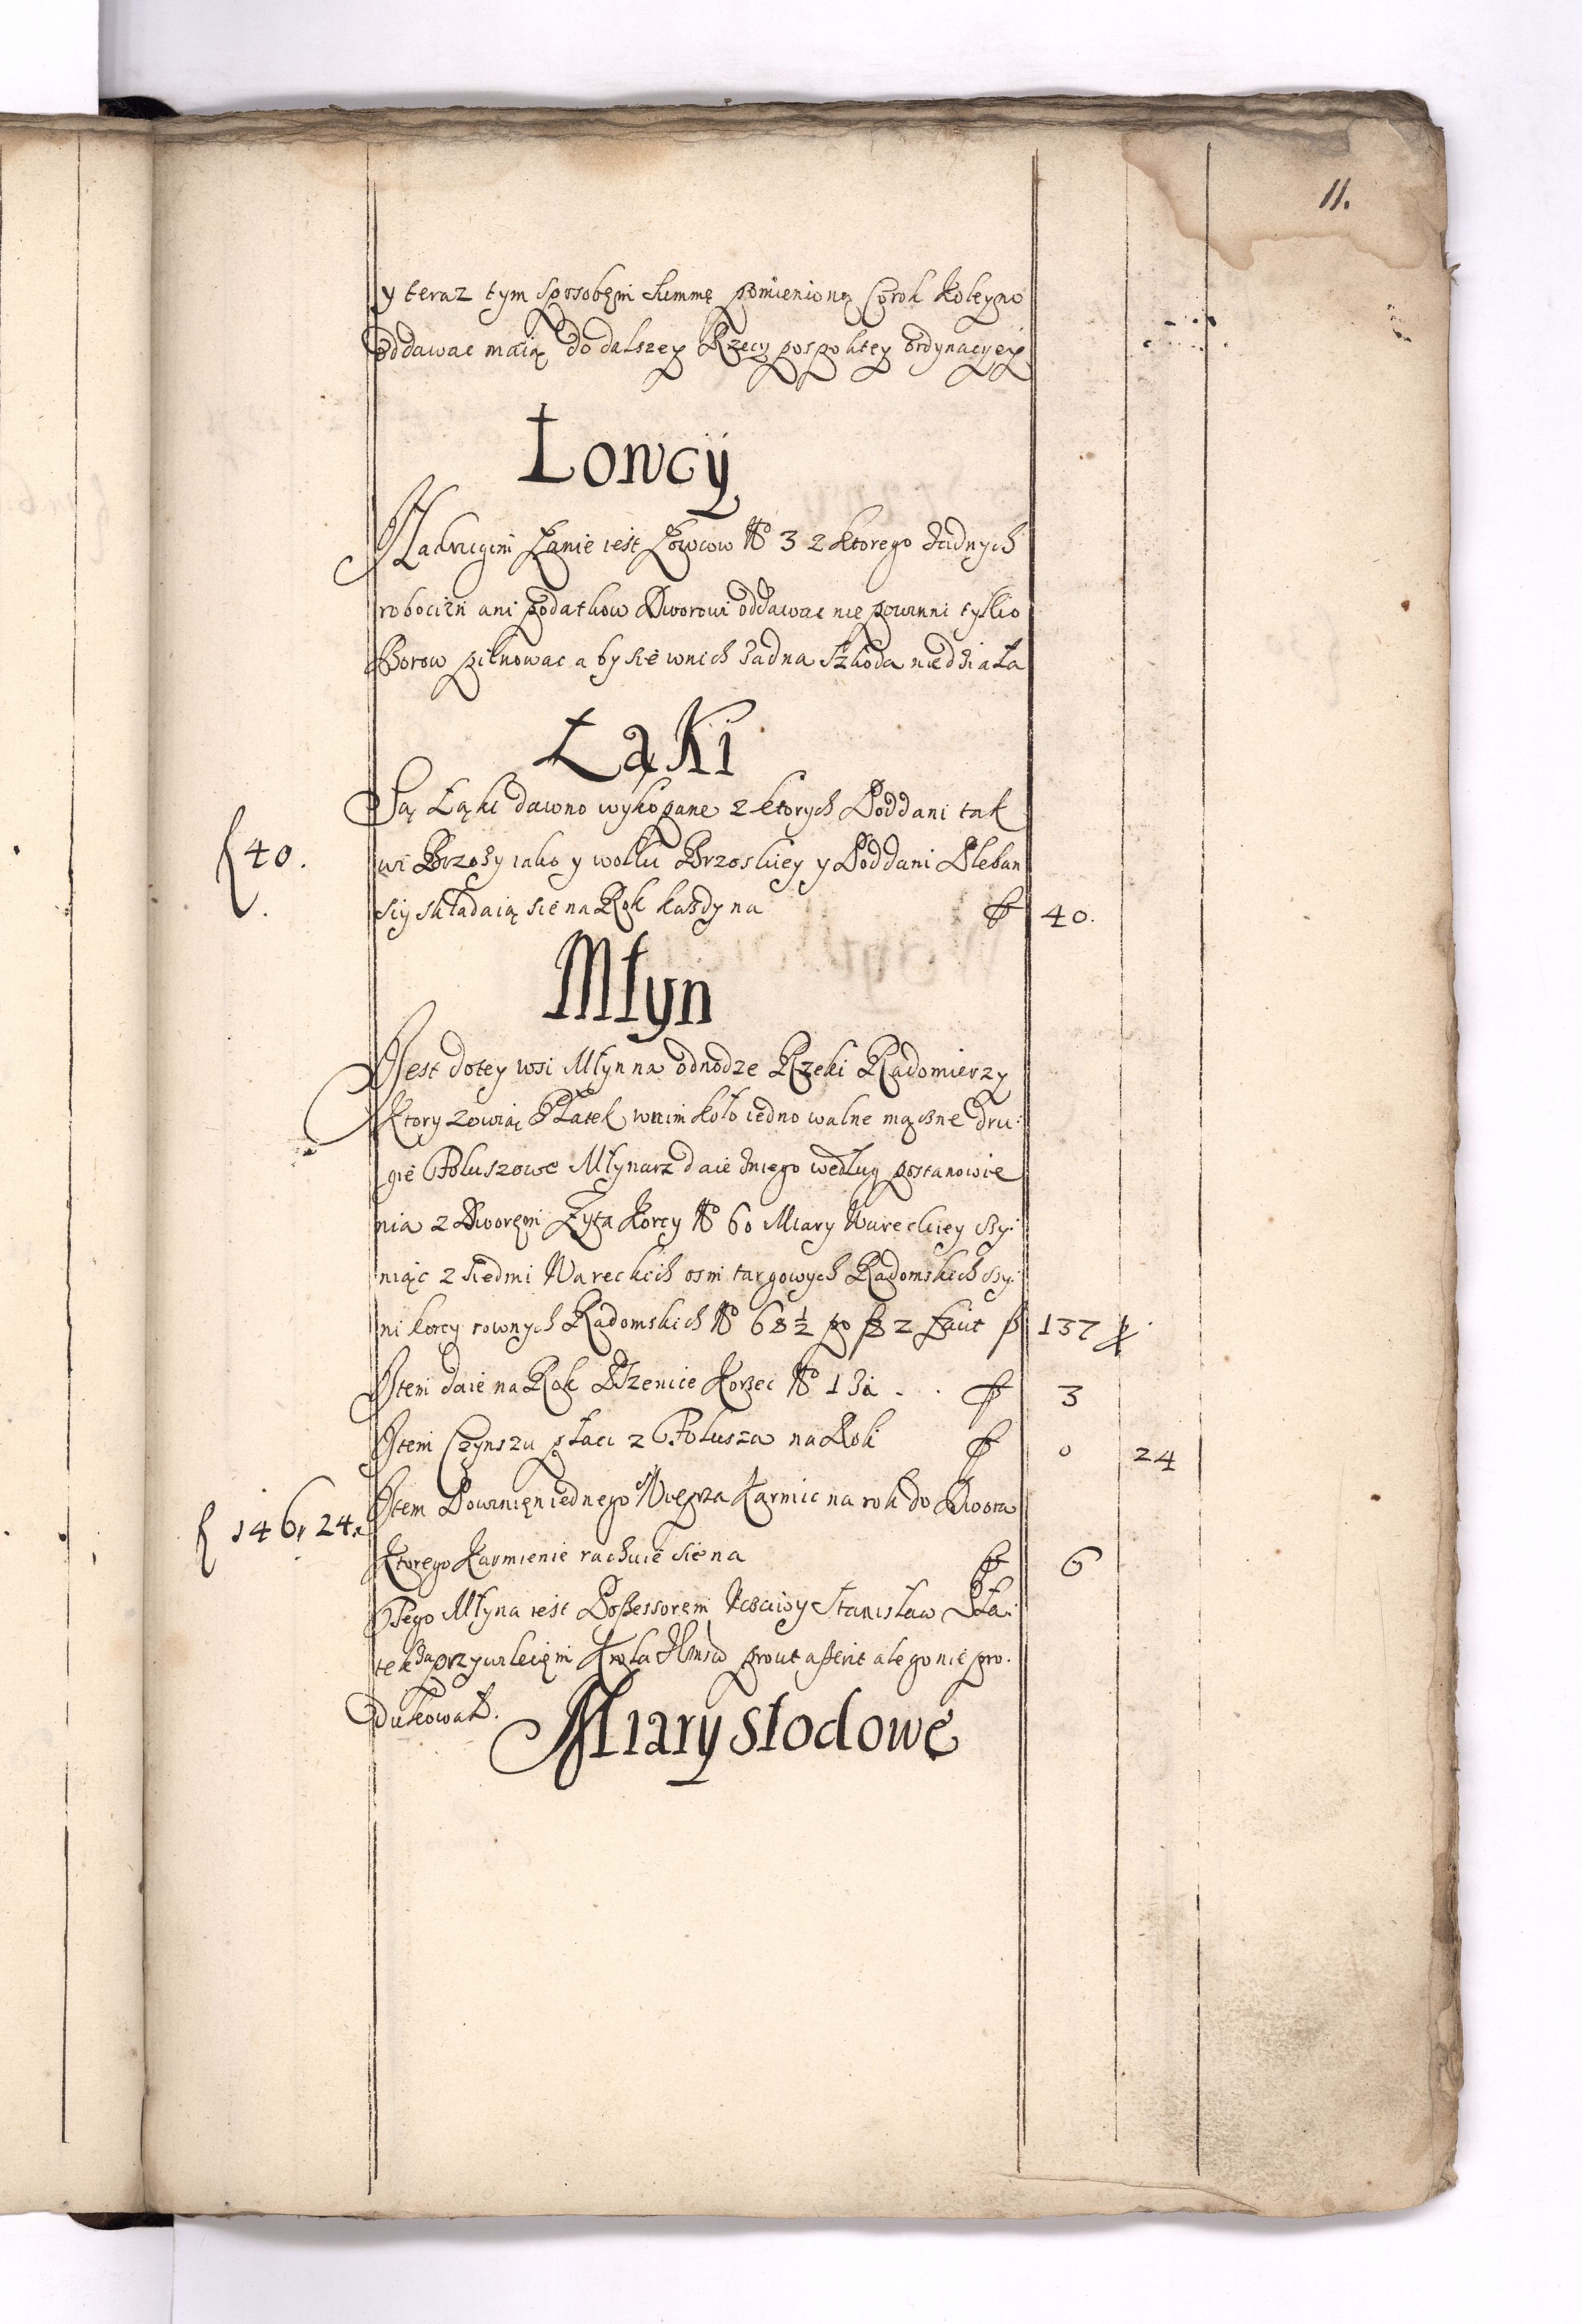 11.
y teraz tym sposobęm summę pomienioną Corok koleyno
oddawac maią do dalszey Rzeczypospolitey ordynacyey
Łowcÿ
Na drugim Łanie iest Łowcow No 3 z ktorego żadnych
robocizn ani podatkow Dworowi oddawac nie powinni tylko
Borow pilnowac aby sie wnich żadna szkoda niedziała
ŁąKi
Są Łąki dawno wykopane z ktorych Poddani tak
f 40.
wi Brzozy iako y wolki Brzoskiey y Poddani Pleban
scy składaią sie na Rok każdy na f 40.
Młyn
Jest dotey wsi Młyn na odnodze Rzeki Radomierzy
Ktory zowią Płatek wnim koło iedno walne mączne dru:
gie Foluszowe Młynarz daie zniego według postanowie
nia z Dworęm Zyta Korcy No 60 Miary Wareckiey czy:
niąc z siedmi Wareckich osm targowych Radomskich czy:
ni korcy rownych Radomskich No 68 ½ po f 2 facit f 137
Item daie na Rok Pszenice Korzec No 1 za . . f 3
Item Czynszu płaci z Folusza na Rok f 0 24
Item Powinięn iednego Wieprza Karmic na rok do Dwora
f 146, 24.
Ktorego Karmienie rachuie sie na f 6
Tego Młyna iest Possessoręm Uczciwy Stanisław Pła:
tek za przywileięm Krola Jmsci prout asserit ale go nie pro.
dukował.
Miary słodowe